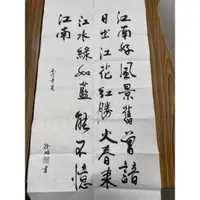 江南好風景舊曾諳
日出江花紅勝火春来
江水綠如藍能不憶
江南
書